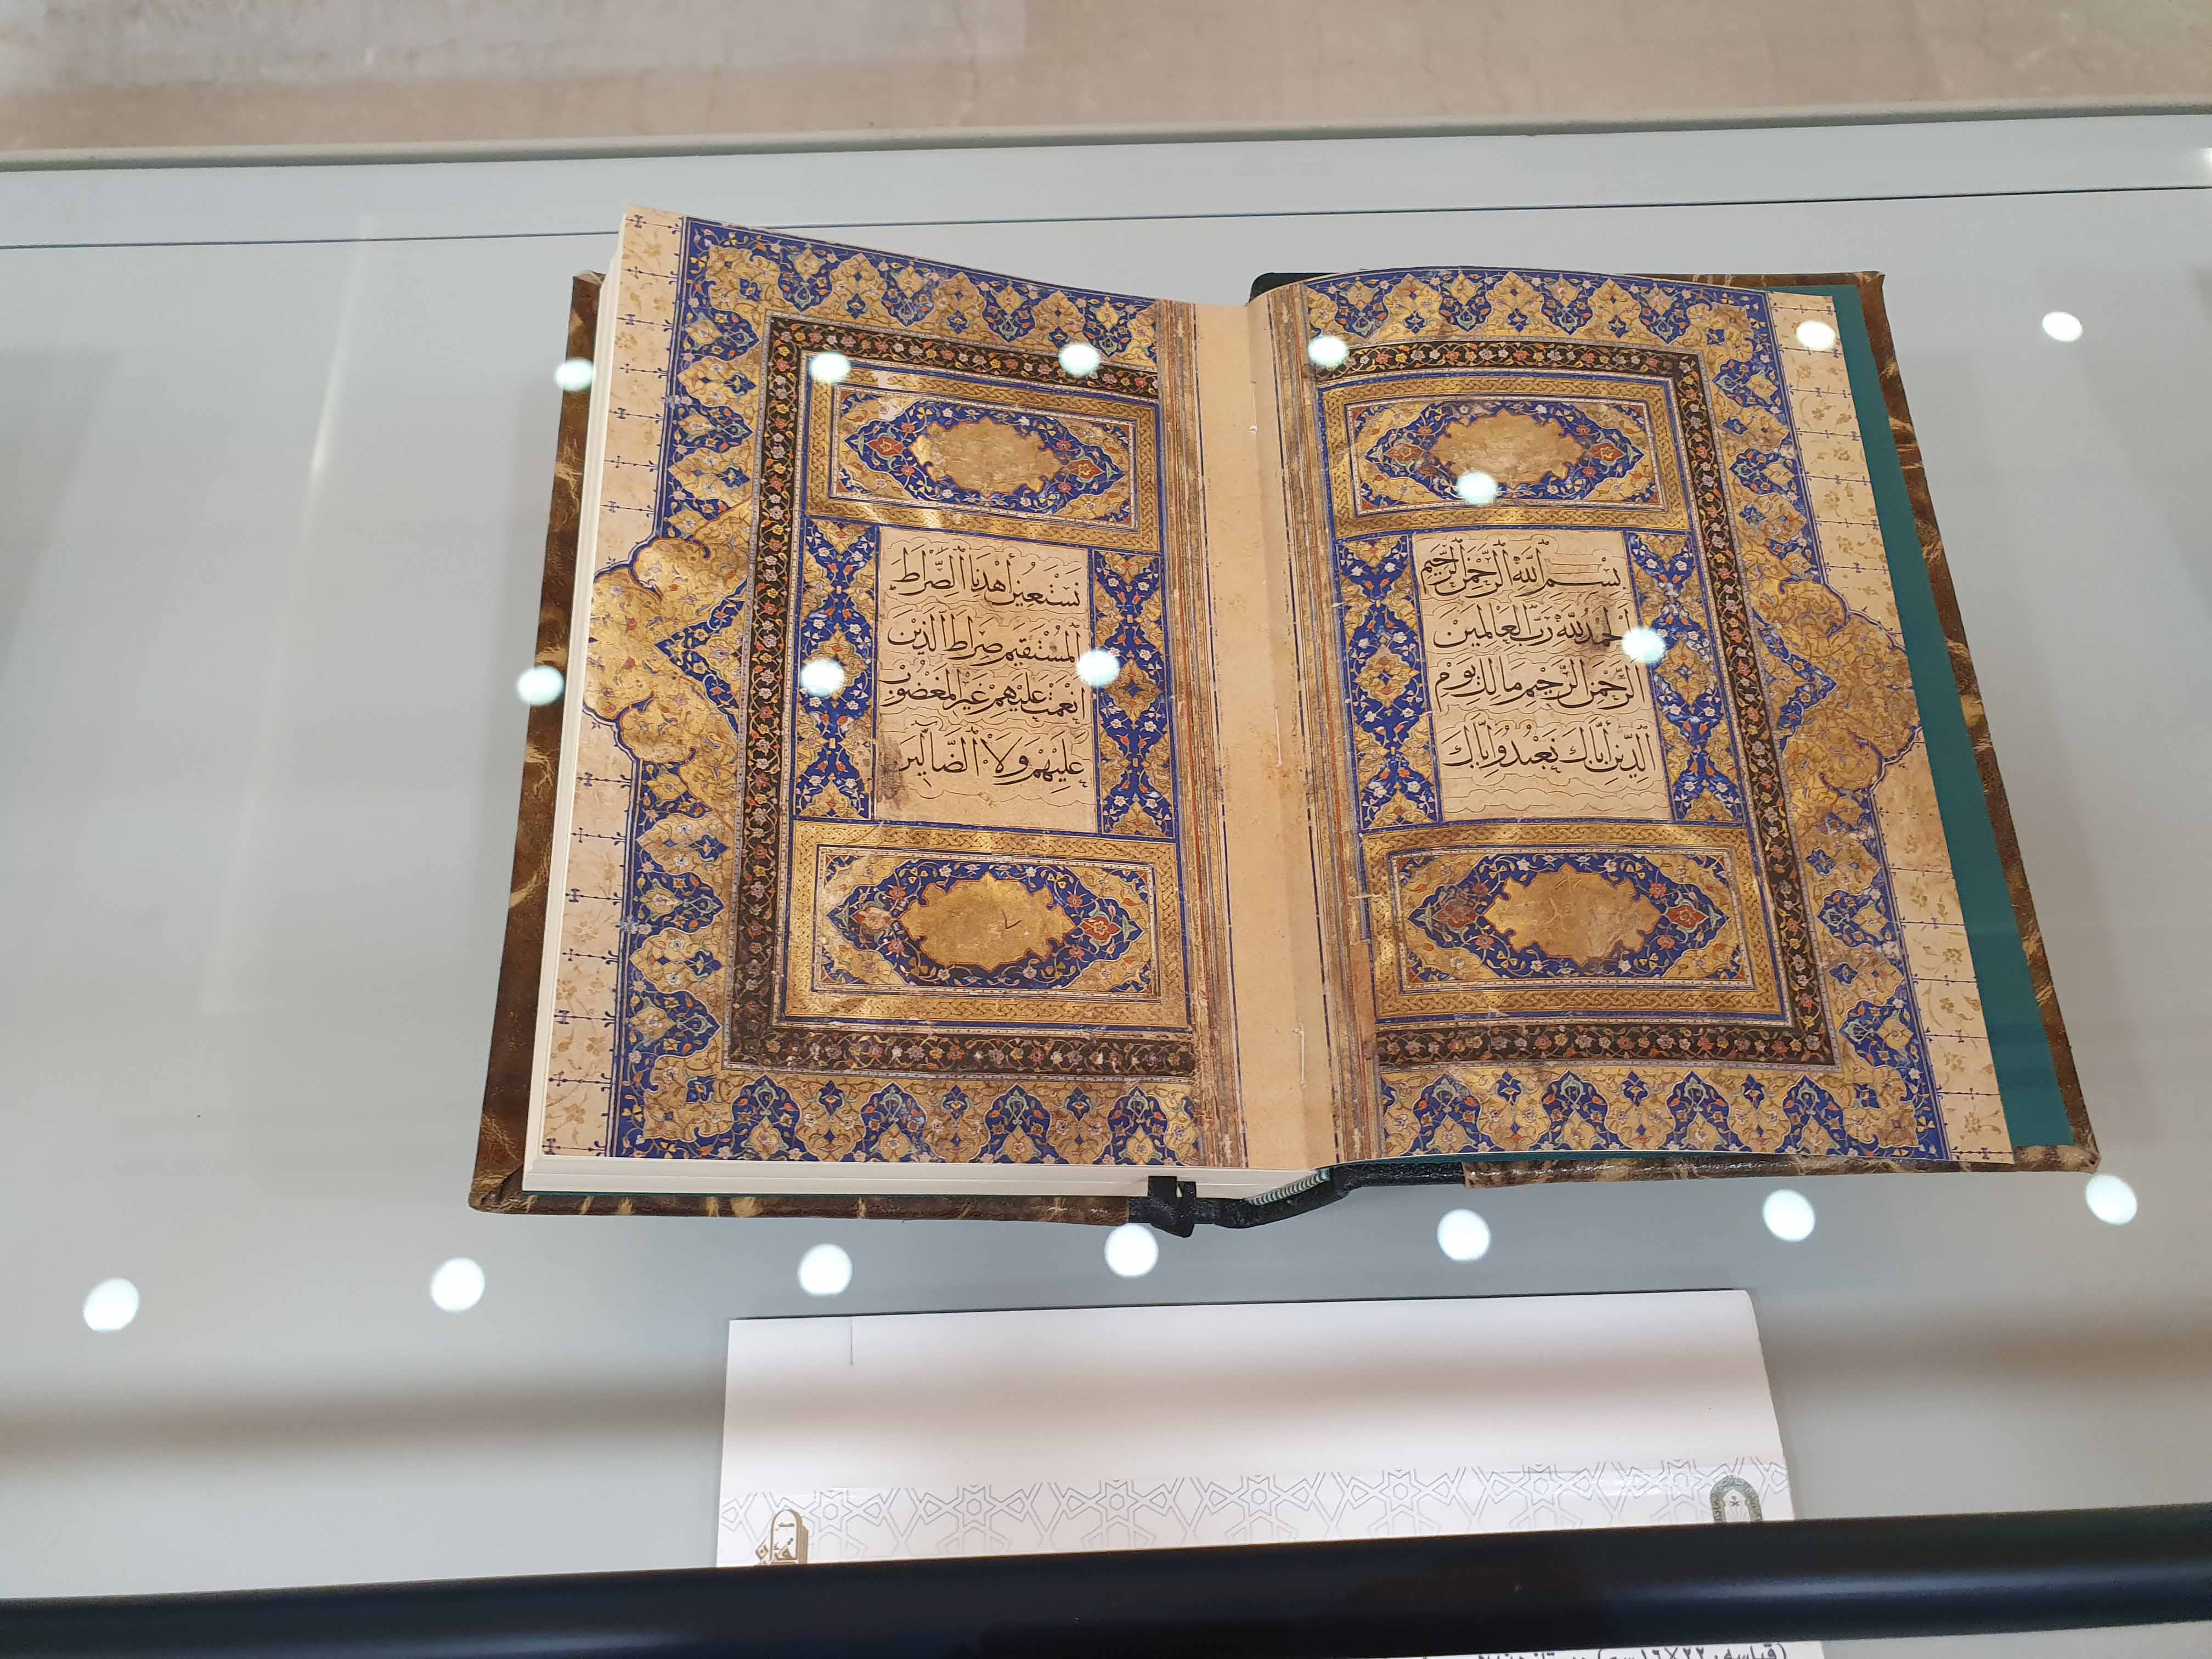 بِسْمِ ٱللَّهِ ٱلرَّحْمَٰنِ ٱلرَّحِيمِ
اَلْحَمْدُ لِلَّهِ رَبِّ الْعَالَمِينَ
ٱلرَّحْمَٰنِ ٱلرَّحِيمِ مَالِكِ يَوْمِ
ٱلدِّينِ إِيَّاكَ نَعْبُدُ وَإِيَّاكَ
نَسْتَعِينُ أهْدِنَا ٱلصِّرَاطَ
ٱلْمُسْتَقِيمَ صِرَاطَ ٱلَّذِينَ
أَنْعَمْتَ عَلَيْهِمْ غَيْرِ الْمَغْضُوبِ
عَلَيْهِمْ وَلَا ٱلضَّآلِّينَ